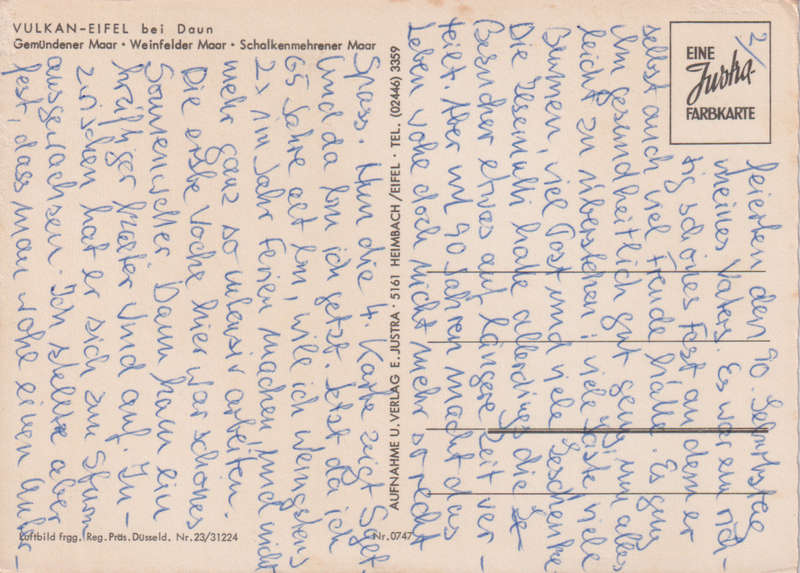 VULKAN-EIFEL bei Daun
Gemündener Maar · Weinfelder Maar · Schalkenmehrener Maar
EINE
Justra-
FARBKARTE
2/
AUFNAHME U. VERLAG E. JUSTRA · 5161 HEIMBACH/EIFEL · TEL. (02446) 3359
Luftbild frgg. Reg. Präs. Düsseld. Nr. 23/31224
Nr. 0747
feierten den 90. Geburtstag
meines Vaters. Es war ein rich-
tig schönes Fest an dem er
selbst auch viel Freude hatte. Es ging
ihm gesundheitlich gut genug um alles
leicht zu überstehen: viele Gäste viele
Blumen, viel Post und viele Geschenke.
Die hatte allerdings die
Besucher etwas auf längere Zeit ver-
teilt. Aber mit 90 Jahren macht das
Leben wohl doch nicht mehr so recht
Spass. Nun die 4. Karte zeigt
und da bin ich jetzt. Jetzt da ich
65 Jahre alt bin, will ich wenigstens
2x im Jahr Ferien machen und nicht
mehr ganz so intensiv arbeiten.
Die erste Woche hier war schönes
Sonnenwetter Dann kam ein
kräftiger Wind auf. In-
zwischen hat er sich zum Sturm
ausgewachsen. Ich stellte aber
fest, dass man ohne einen